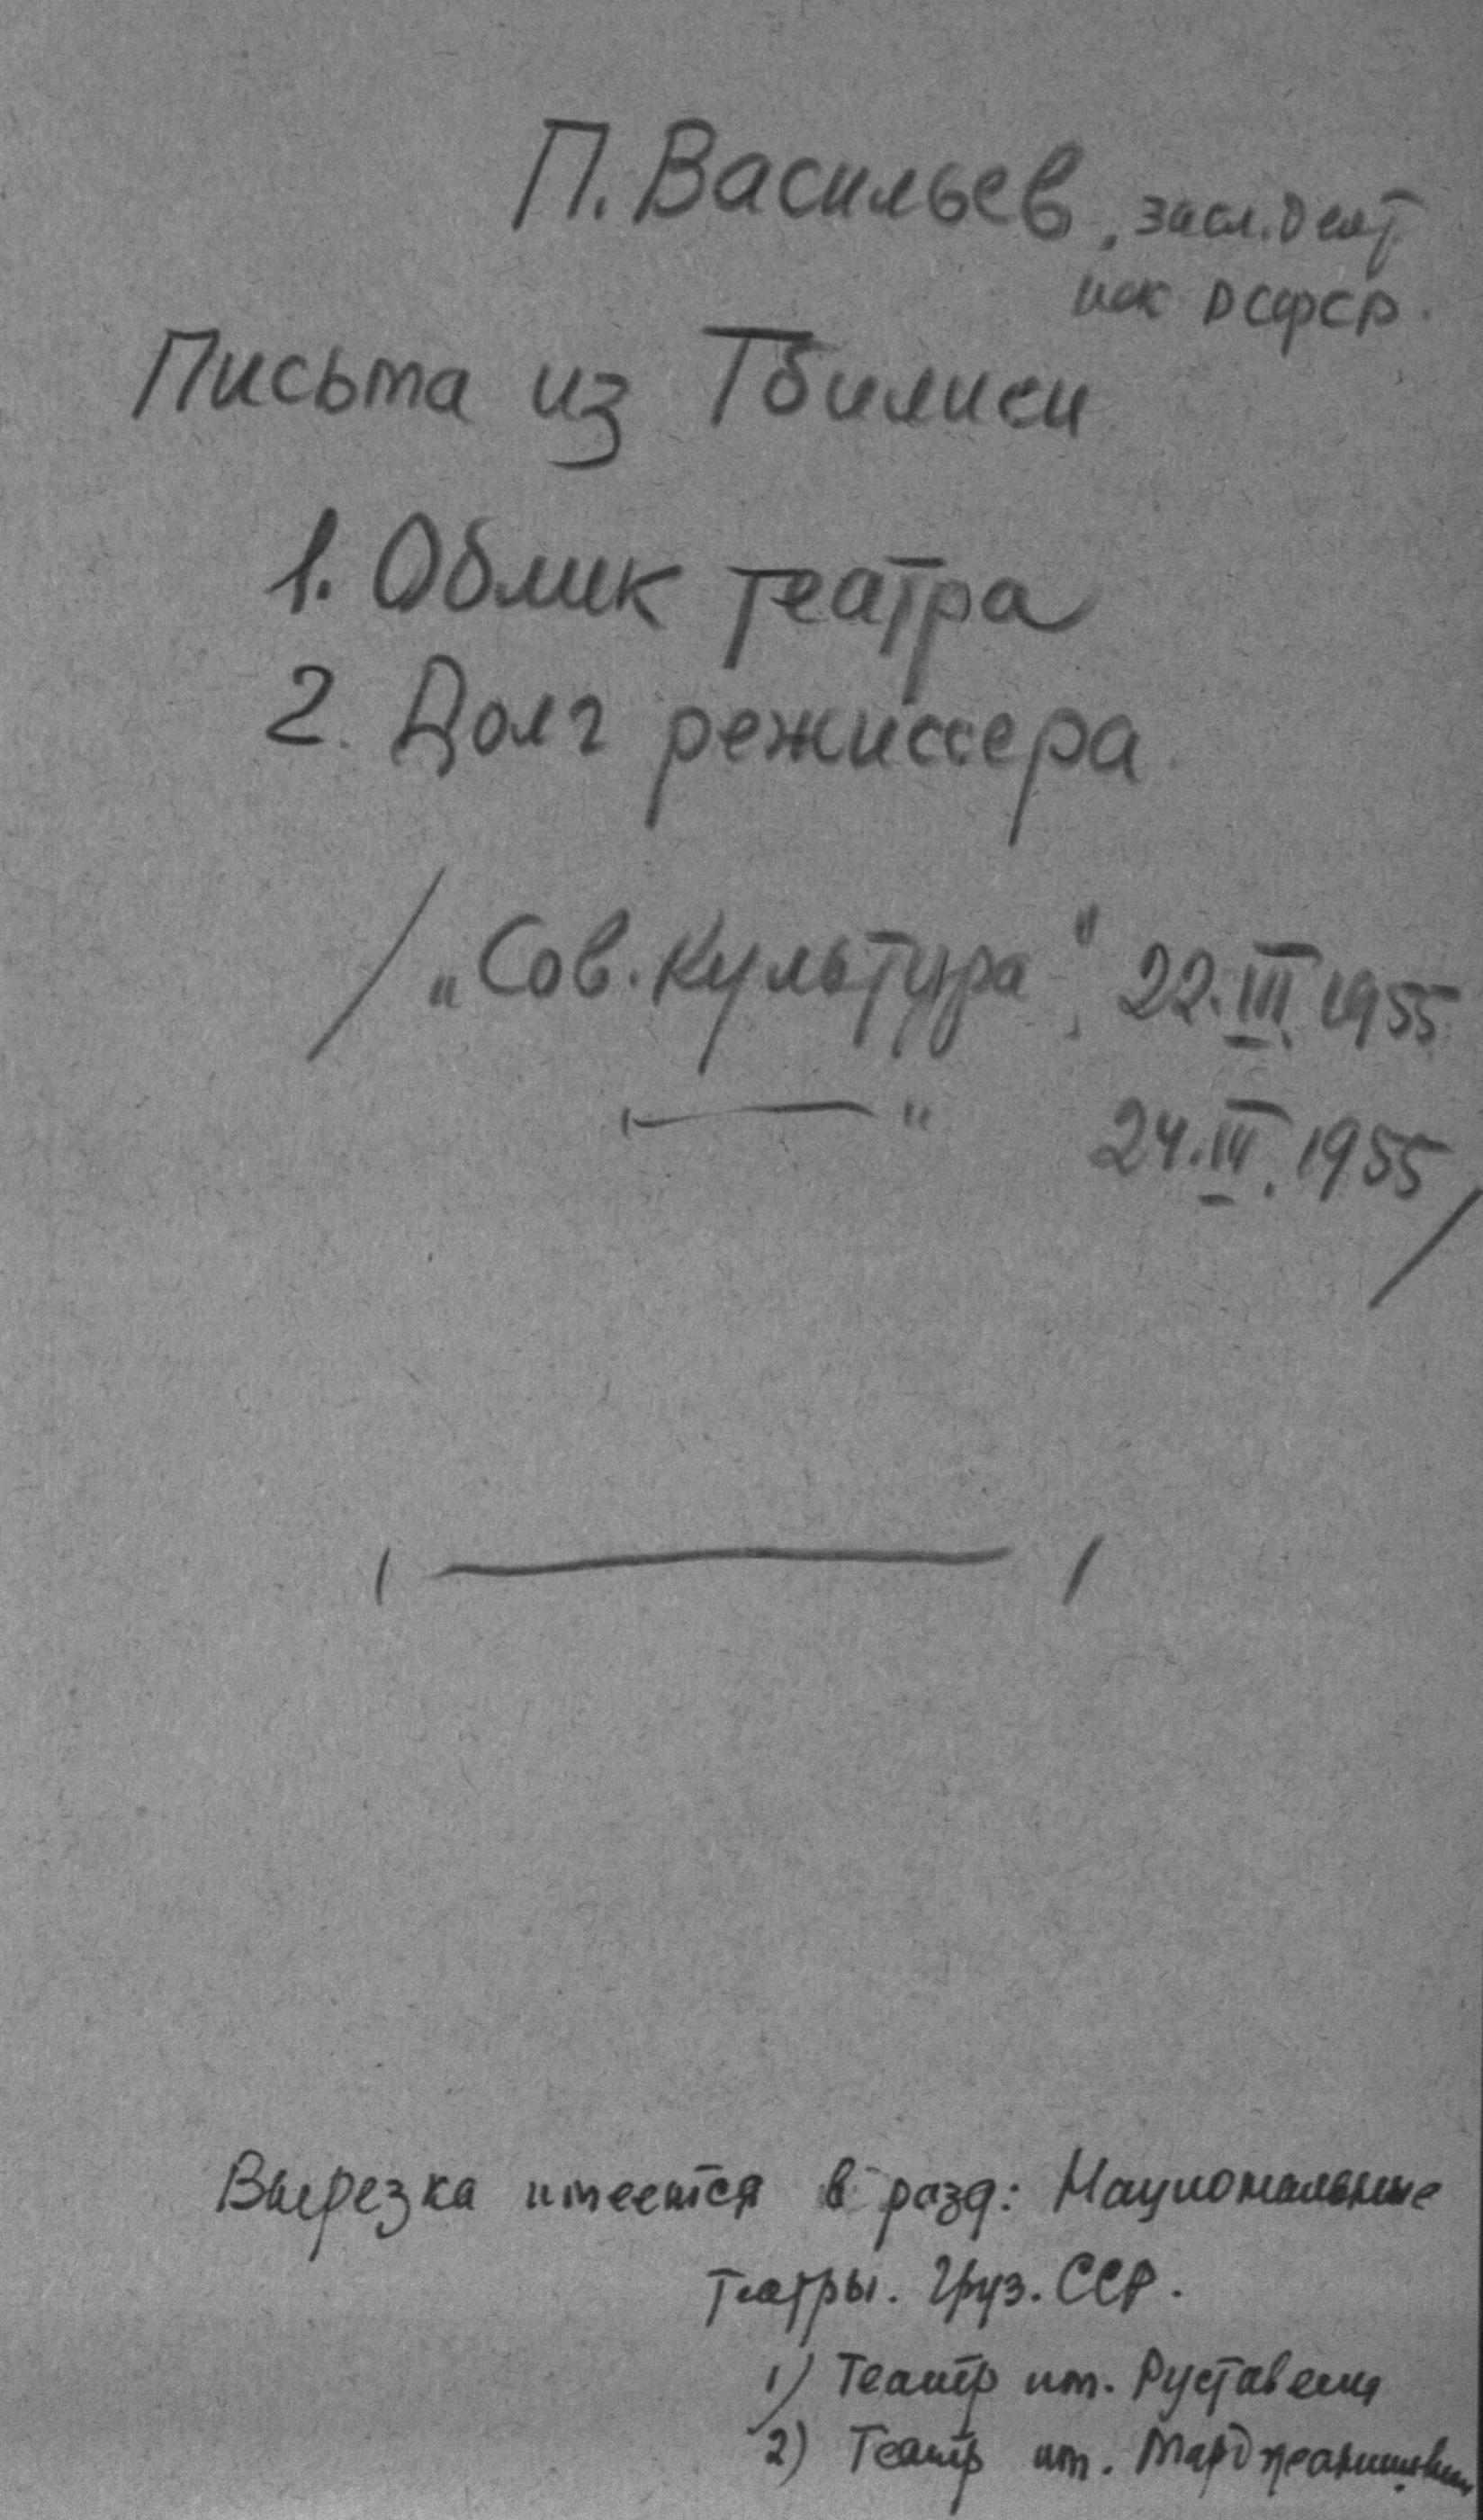 П. Васильев, засл. деят
иск РСФСР.
Письма из Тбилиси
1. Облик театра
2. Долг режиссера
/ „Сов. культура", 22.III.1955
—— " 24.III.1955 /
Вырезка имеется в разд: Национальные
театры. Груз. ССР.
1) Театр им. Руставели
2) Театр им. Марджанишвили